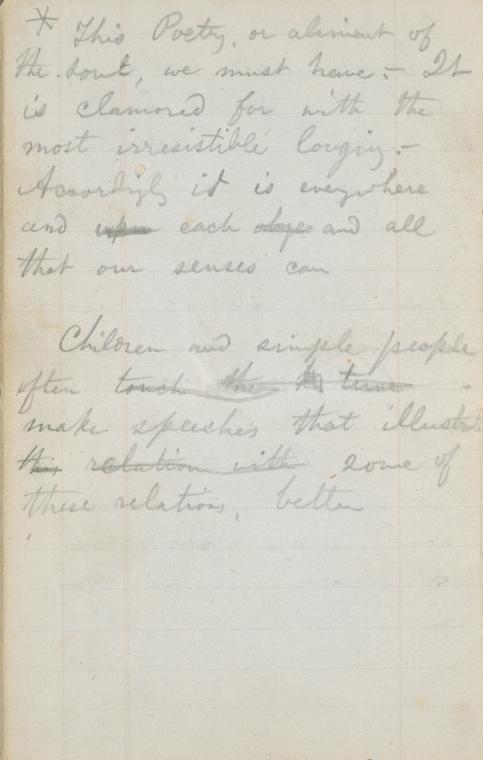 * This Poetry, or aliment of
the soul, we must have.– It
is clamored for with the
most irresistible longing.–
Accordingly it is everywhere
and upon each and all
that our senses can
Children and simple people
often touch the time
make speeches that illustrate
this relation with some of
these relations, better